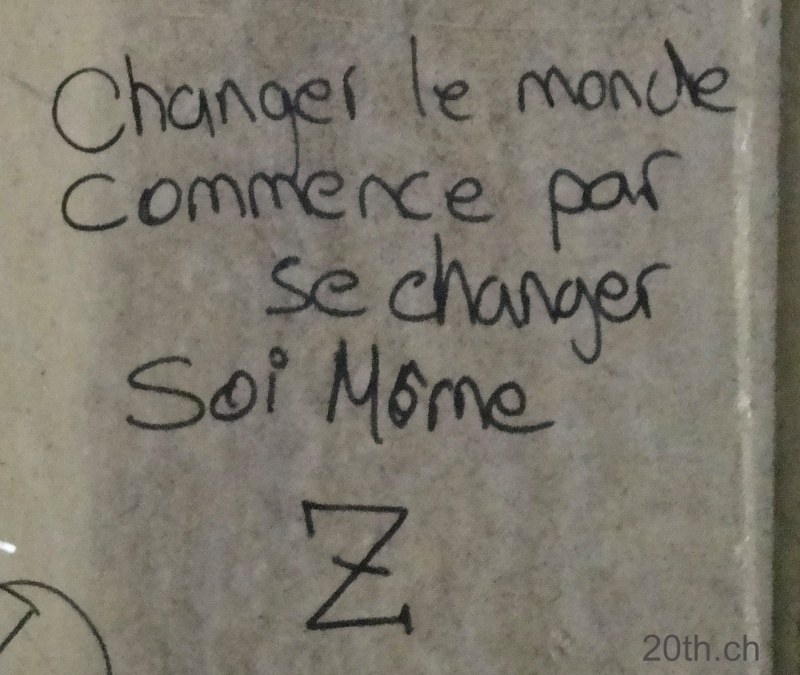 Changer le monde
commence par
se changer
Soi Même
Z
20th.ch